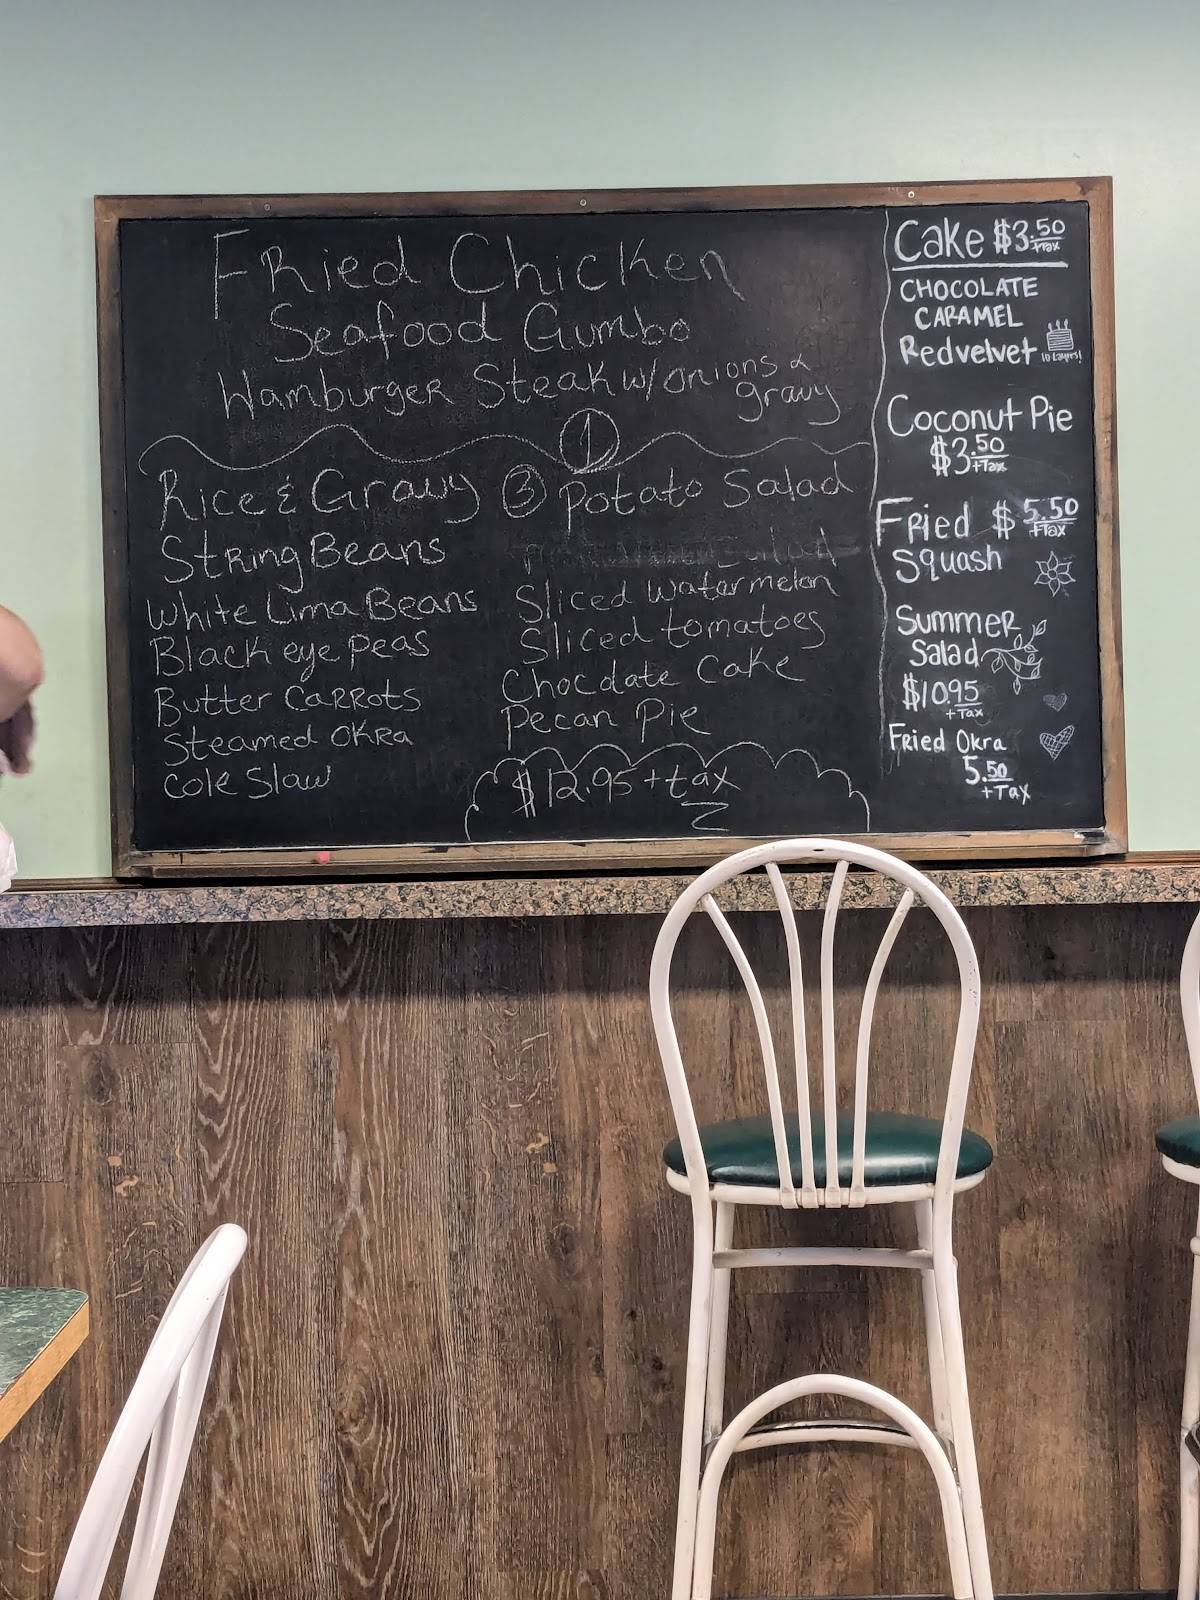 Fried Chicken
Seafood Gumbo
Hamburger Steak w/ onions & gravy
1
Rice & Gravy
String Beans
White Lima Beans
Black eye peas
Butter Carrots
Steamed Okra
Cole Slaw
3
Potato Salad
Salad
Sliced watermelon
Sliced tomatoes
Chocolate Cake
Pecan Pie
$12.95 + tax
Cake $3.50 +Tax
CHOCOLATE
CARAMEL
Redvelvet
10 Layers!
Coconut Pie
$3.50 +Tax
Fried $5.50 +Tax
Squash
Summer
Salad
$10.95
+Tax
Fried Okra
5.50
+Tax